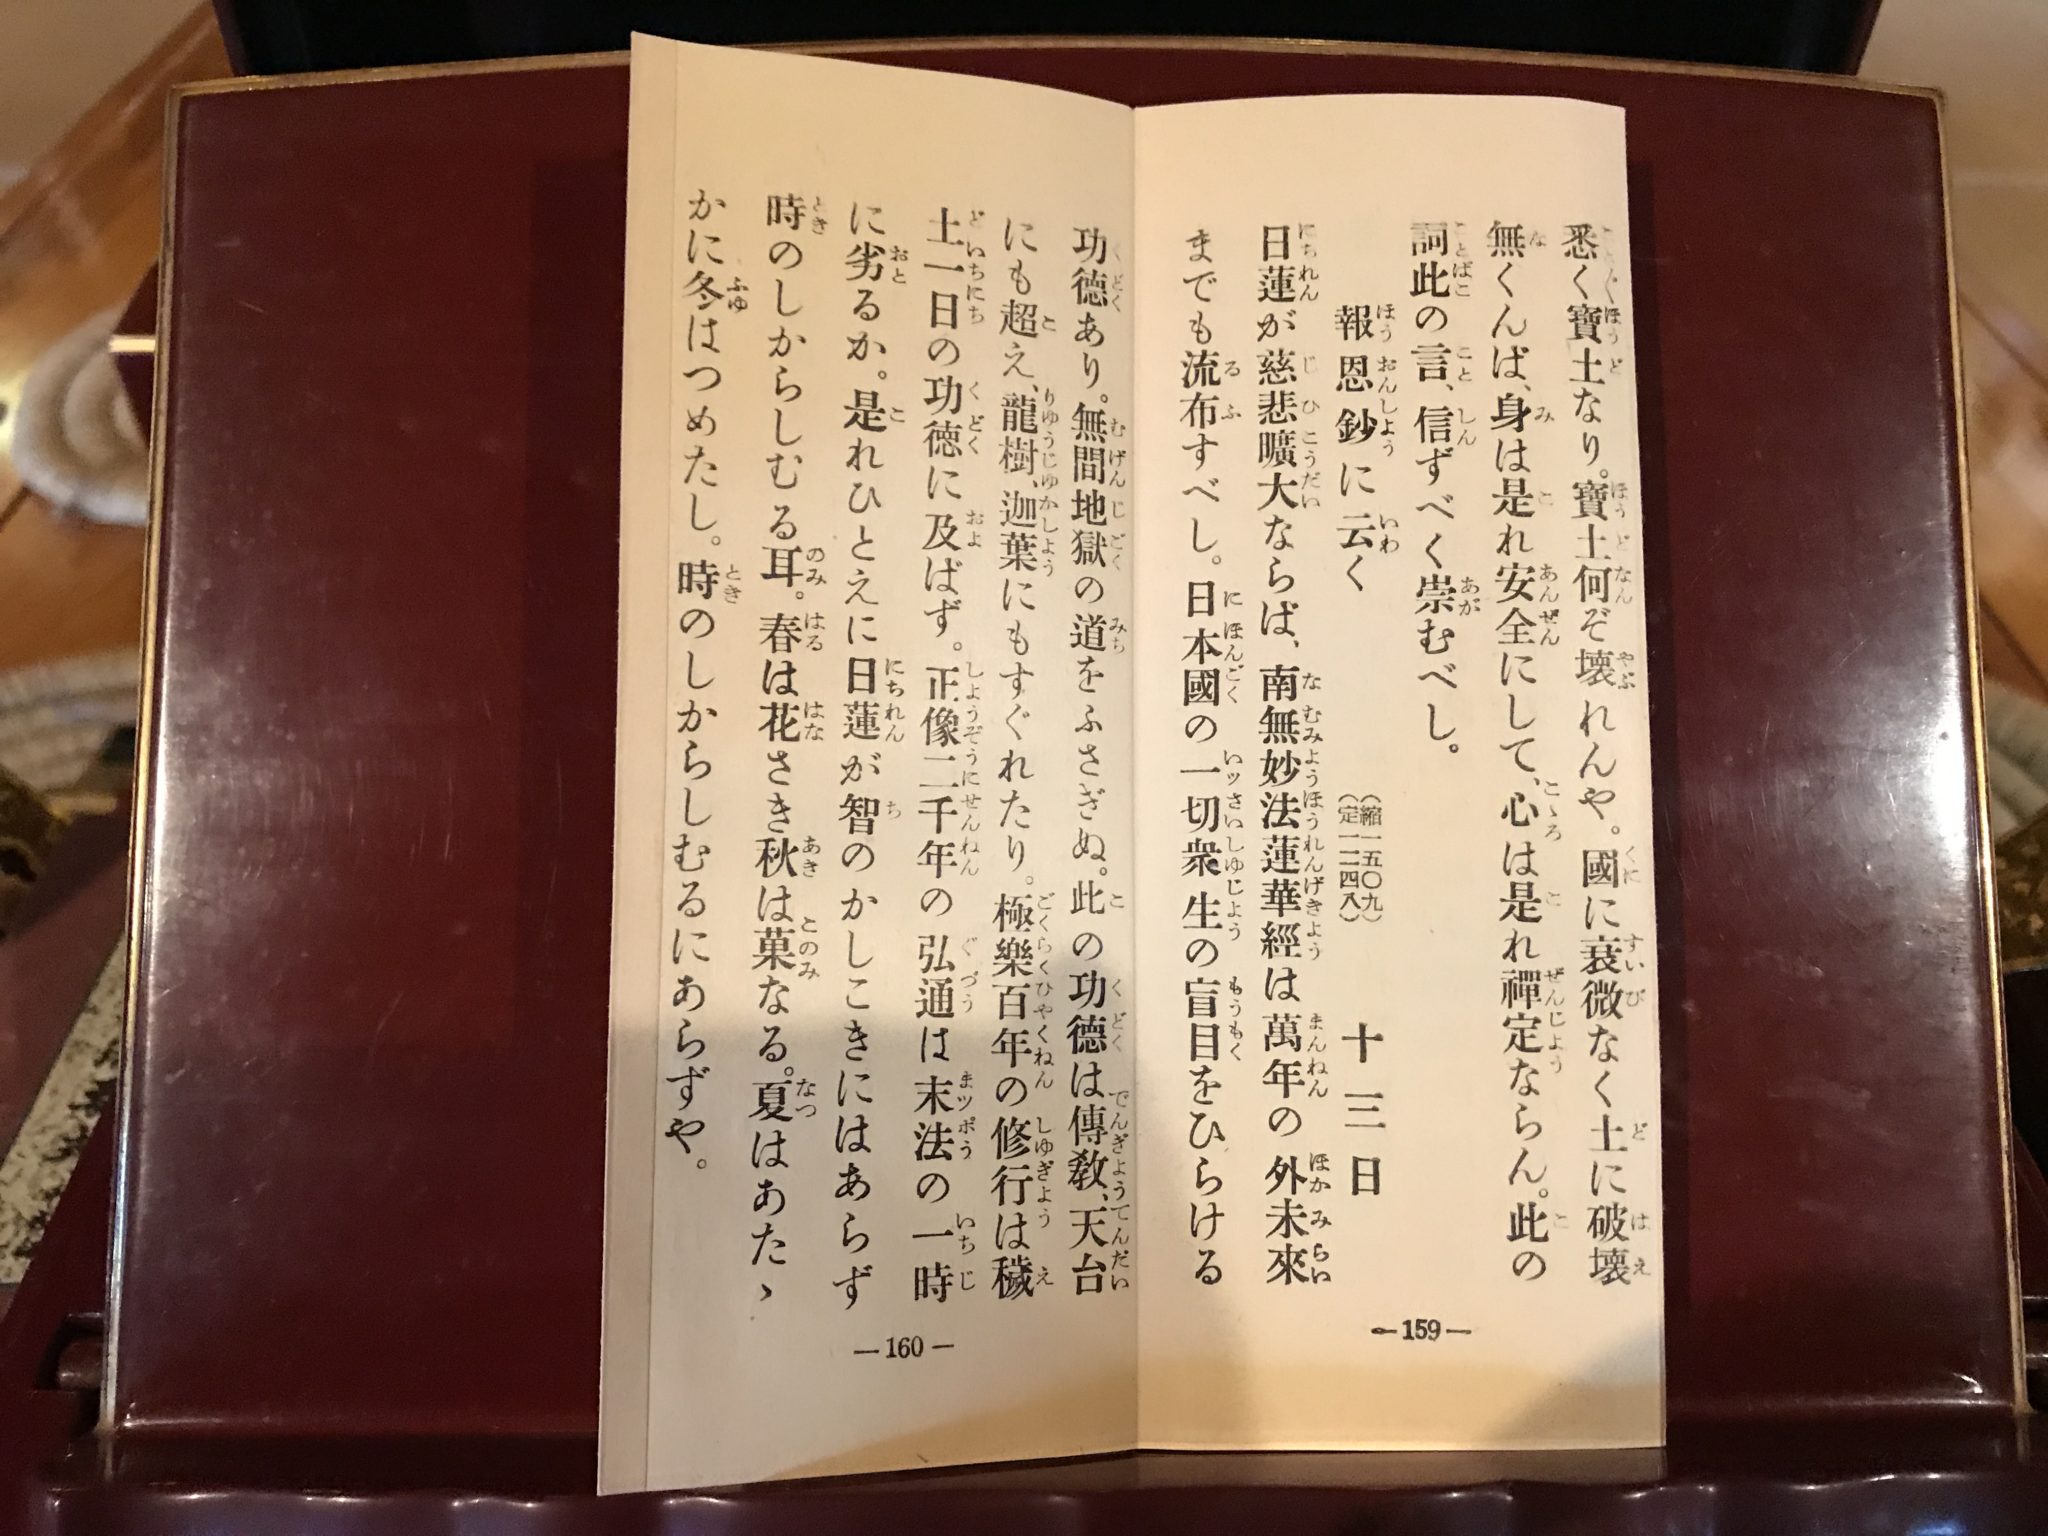 悉く寶土なり。寶土何ぞ壊れんや。國に衰微なく土に破壊
無くんば、身は是れ安全にして、心は是れ禪定ならん。此の
詞此の言、信ずべく崇むべし。
報恩鈔に云く
(縮一五〇九)
(定一二四八)
十三日
日蓮が慈悲曠大ならば、南無妙法蓮華經は萬年の外未來
までも流布すべし。日本國の一切衆生の盲目をひらける
—159—
功德あり。無間地獄の道をふさぎぬ。此の功德は傳敎、天台
にも超え、龍樹、迦葉にもすぐれたり。極樂百年の修行は穢
土一日の功徳に及ばず。正像二千年の弘通は末法の一時
に劣るか。是れひとえに日蓮が智のかしこきにはあらず
時のしからしむる耳。春は花さき秋は菓なる。夏はあたゝ
かに冬はつめたし。時のしからしむるにあらずや。
—160—